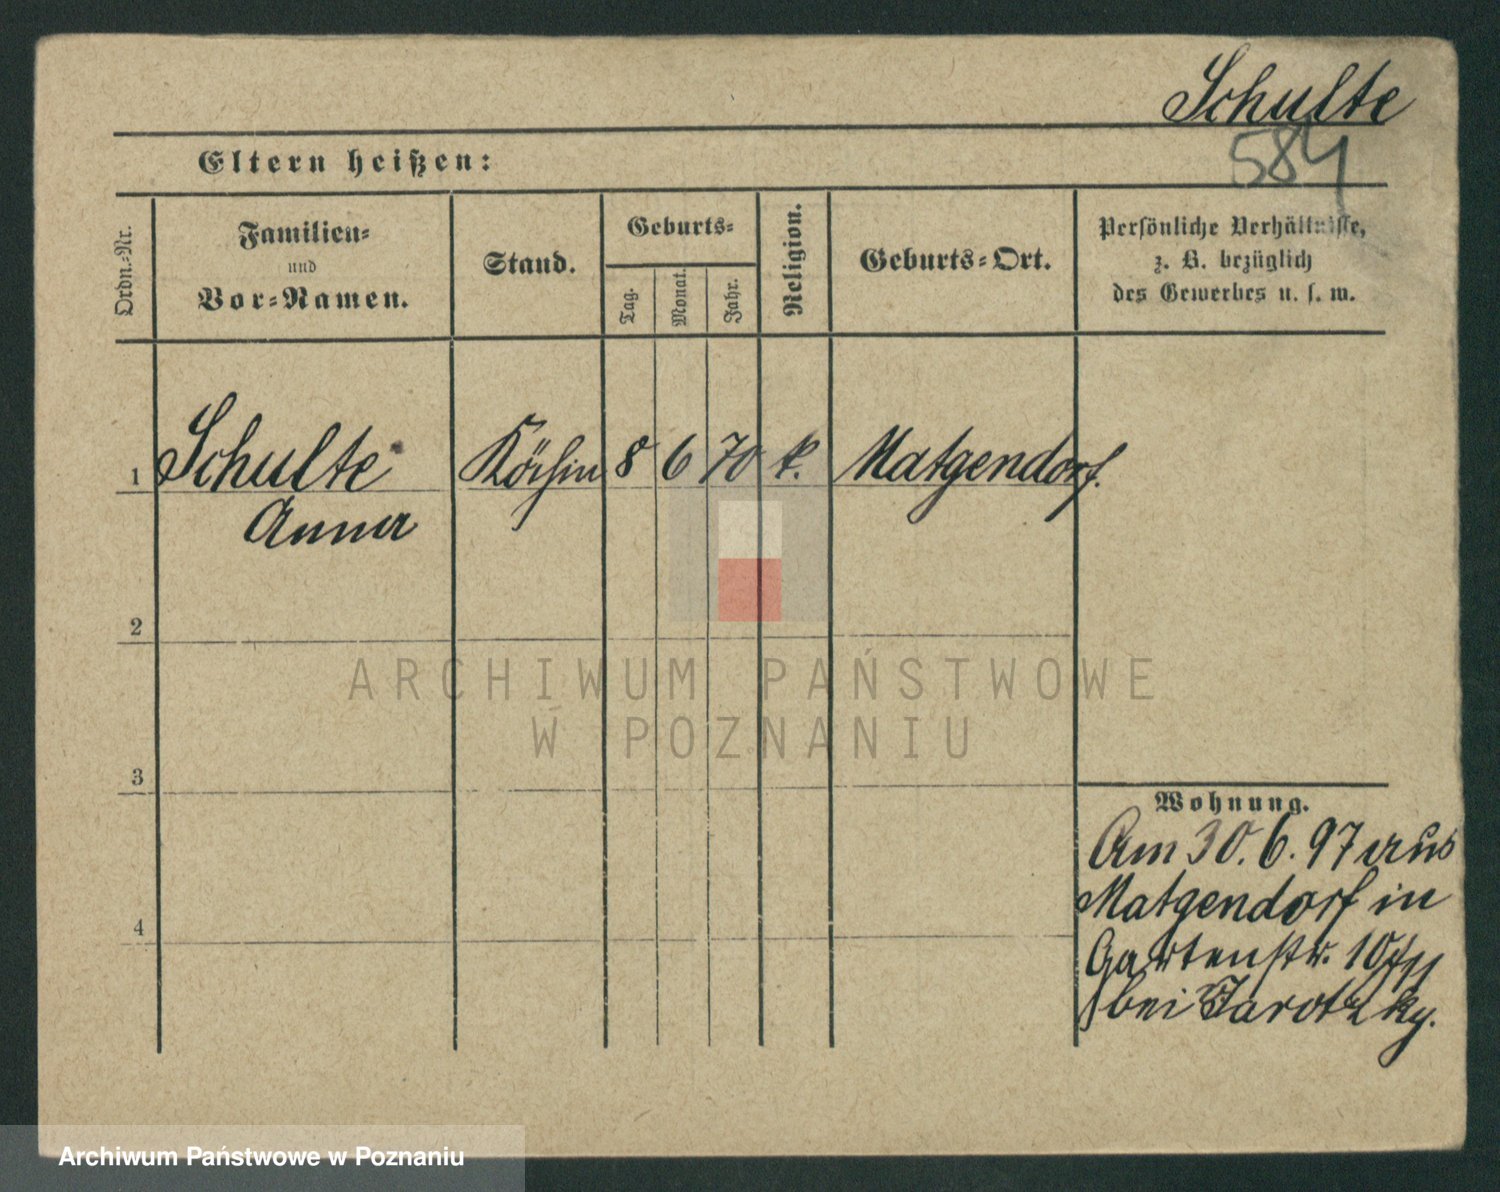 Schulte
584
Eltern heißen:
Ordn.-Nr.
Familien-
und
Vor-Namen.
Stand.
Geburts-
Tag.
Monat.
Jahr.
Religion.
Geburts-Ort.
Persönliche Verhältnisse,
z. B. bezüglich
des Gewerbes u. s. w.
1 Schulte Köchin 8 6 70 k. Matgendorf.
Anna
2
3
4
Wohnung.
Am 30. 6. 97 aus
Matgendorf in
Gartenstr. 10
bei Jarotzky.
ARCHIWUM PAŃSTWOWE
W POZNANIU
Archiwum Państwowe w Poznaniu